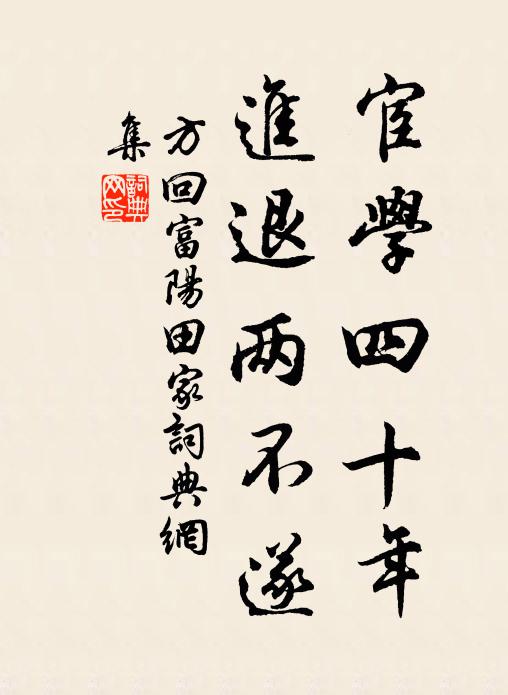 宦學四十年
進退两不遂
方回富陽田家詞典網
集
詞典
網印